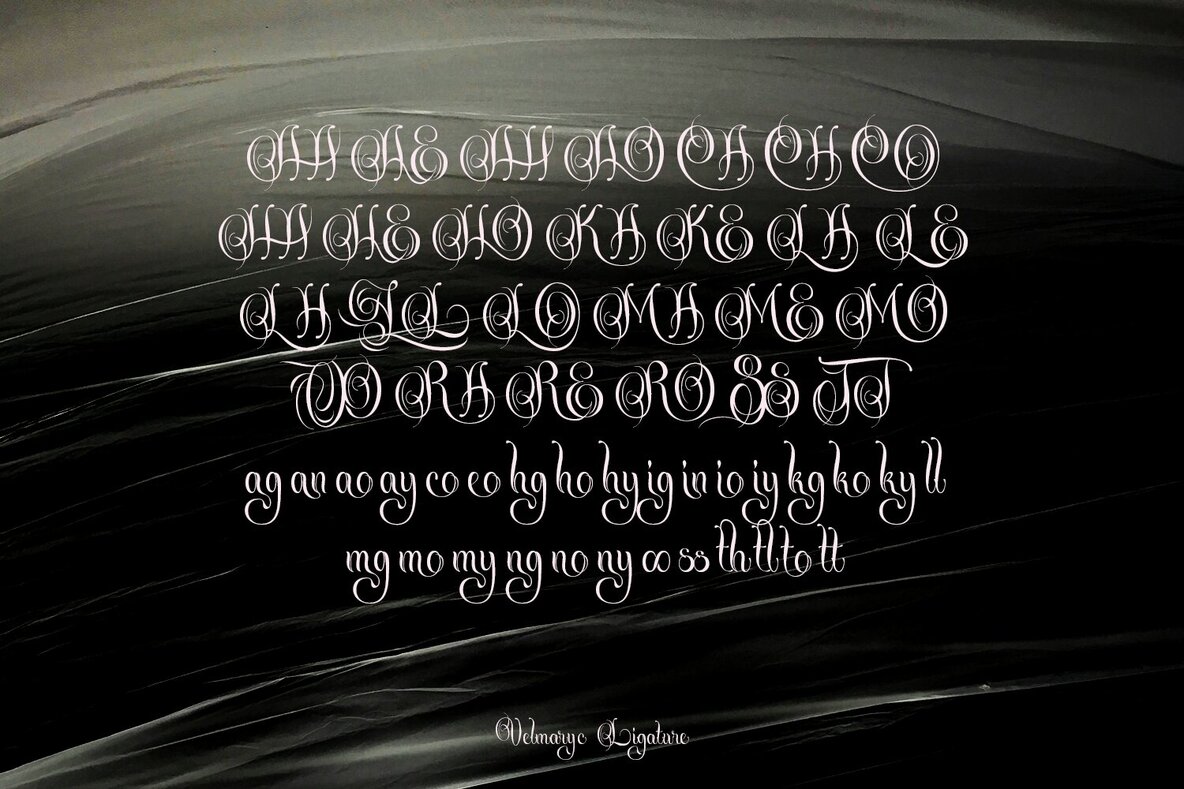 AA AE AH AO CA CH CO
HA HE HO KA KE LA LE
LH LL LO MA ME MO
OO RA RE RO SS TT
ag an ao ay co eo hg ho hy ig in io iy kg ko ky ll
mg mo my ng no ny oo ss th tl to tt
Velmaryc Ligature